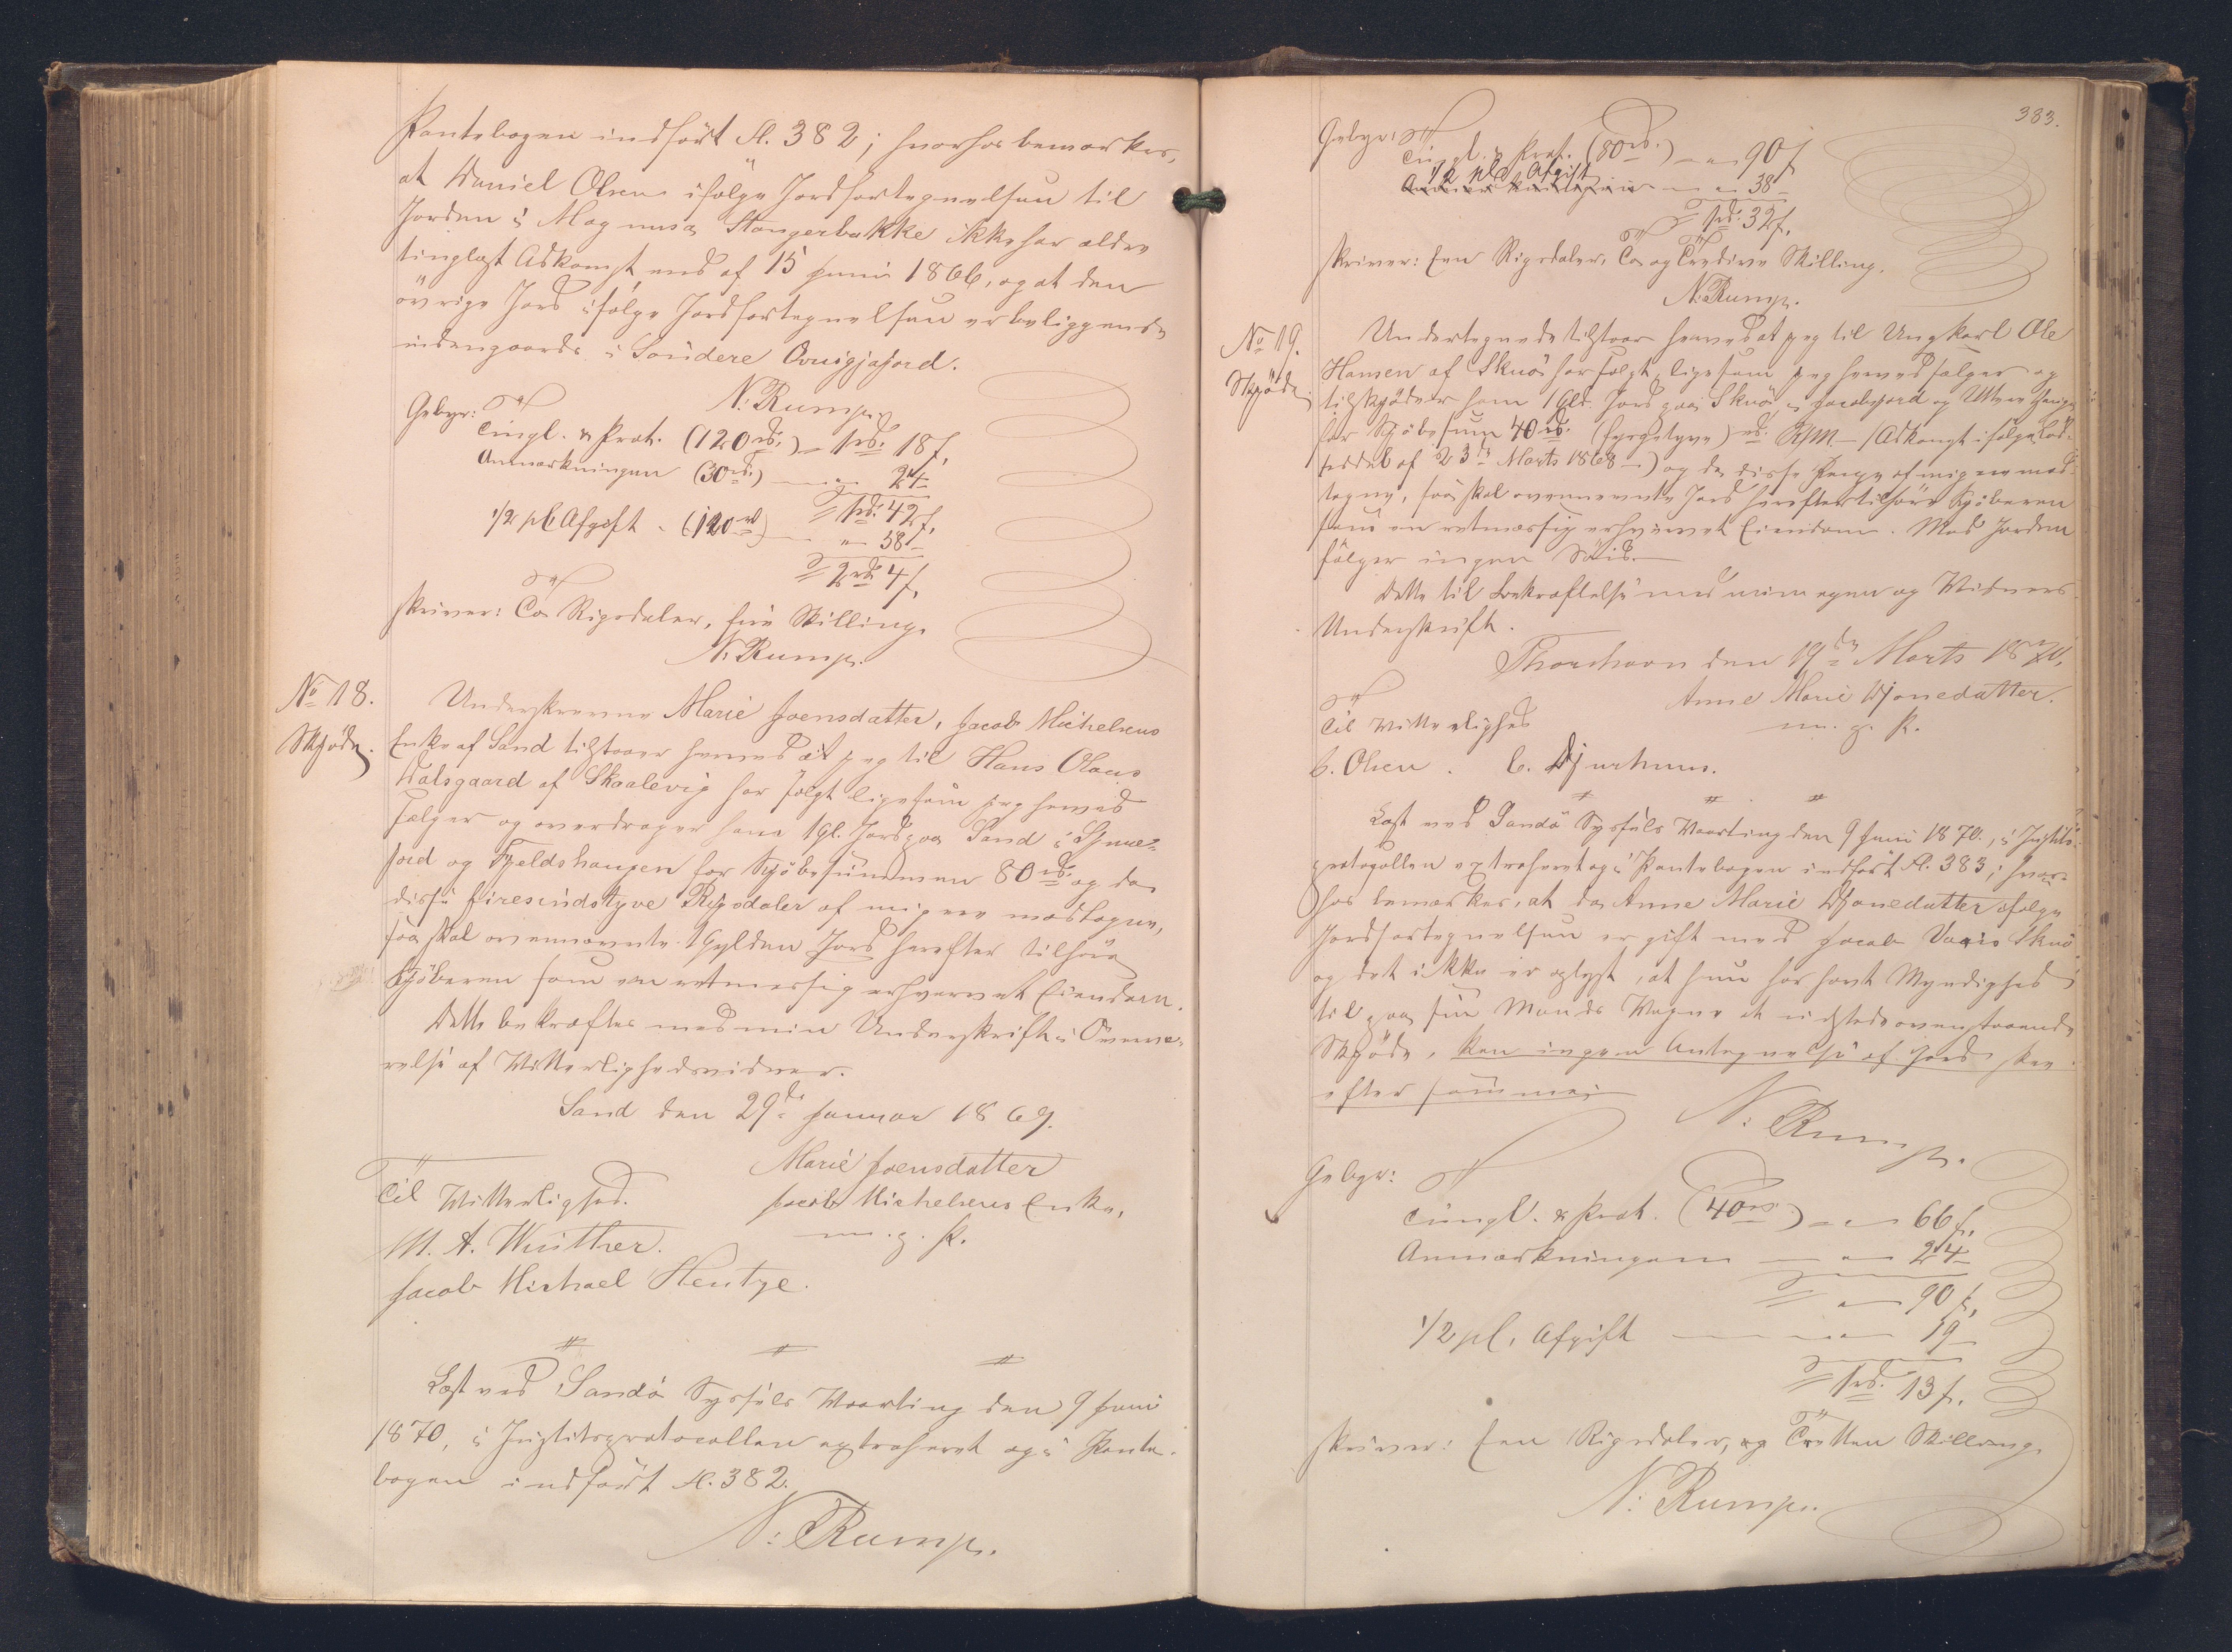 Pantebogen indført fl. 382; hvorhos bemærkes,
at Daniel Olsen ifølge Jordfortegnelsen til
Jorden i Magnusa Stangerbakke ikke har ældre
tinglæst Adkomst end af 15 Juni 1866, og at den
övrige Jord ifølge Jordfortegnelsen er beliggende
indengaards i Söndere
N. Rump.
Gebyr:
Tingl. & Prot. (120 rd.) – 1 rd. 18 ſ,
Anmærkningen (30 rd.) — „ 24 –
= 1 rd. 42 ſ,
1/2 pCt Afgift „ (120 rd) — „ 58 –
= 2 rd. 4 ſ,
skriver: To Rigsdaler, fire Skilling.
N. Rump.
No 18.
Skjøde.
Underskrevne Marie Joensdatter, Jacob Michelsens
Enke af Sand tilstaaer herved at jeg til Hans Olaus
Dalsgaard af Skaalevig har solgt ligesom jeg herved
sælger og overdrager ham 1 Gl. Jord paa Sand i
jord og Fjeldshausen for Kjøbesummen 80 rd. og da
disse firesindstyve Rigsdaler af mig ere modtagne,
saa skal ovennævnte 1 Gylden Jord herefter tilhøre
Kjøberen som en retmæssig erhvervet Eiendom.
Dette bekræftes med min Underskrift i Overvæ-
relse af Vitterlighedsvidner.
Sand den 29de Januar 1869.
Marie Joensdatter
Til Vitterlighed. Jacob Michelsens Enke,
M. A. Winther. m. f. P.
Jacob Michael Hentze.
Læst ved Sandö Syssels Vaarting den 9 Juni
1870, i Justitsprotocollen extraheret og i Pante-
bogen indført fl. 382.
N. Rump.
383.
Gebyr:
Tingl. & Prot. (80 rd.) – „ 90 ſ
1/2 pCt Afgift „ 38 –
= 1 rd. 32 ſ,
skriver: Een Rigsdaler, To og Tredive Skilling.
N. Rump.
No 19.
Skjøde
Undertegnede tilstaaer herved at jeg til Ungkarl Ole
Hansen af Skuö har solgt, ligesom jeg herved sælger og
tilskjøder ham 1 Gld. Jord paa Skuö, i Jacobsjord og
for Kjøbesum 40 rd. (fyrgetyve) rd. R.M. – (Adkomst ifølge Lod-
seddel af 23de Marts 1868 –) og da disse Penge af mig ere mod-
tagne, saa skal ovennævnte Jord herefter tilhøre Kjøberen
som en retmæssig erhvervet Eiendom. Med Jorden
følger ingen
Dette til Bekræftelse med min egen og Vidners
Underskrift.
Thorshavn den 19de Marts 1870.
Anne Marie Djonedatter.
Til Vitterlighed m. f. P.
C. Olsen. C. Djurhuus.
Læst ved Sandö Syssels Vaarting den 9 Juni 1870, i Justits-
protocollen extraheret og i Pantebogen indført fl. 383; hvor-
hos bemærkes, at da Anne Marie Djonedatter ifølge
Jordfortegnelsen er gift med Jacob Skuö
og det ikke er oplyst, at hun har havt Myndighed
til paa sin Mands Vegne at udstede ovenstaaende
Skjøde, kan ingen Antegnelse af Jord skee
efter samme.
N. Rump.
Gebyr:
Tingl. & Prot. (40 rd.) – „ 66 ſ,
Anmærkningen — „ 24 –
= „ 90 ſ,
1/2 pCt. Afgift — „ 19 –
= 1 rd. 13 ſ.
skriver: Een Rigsdaler, og Tretten Skilling.
N. Rump.